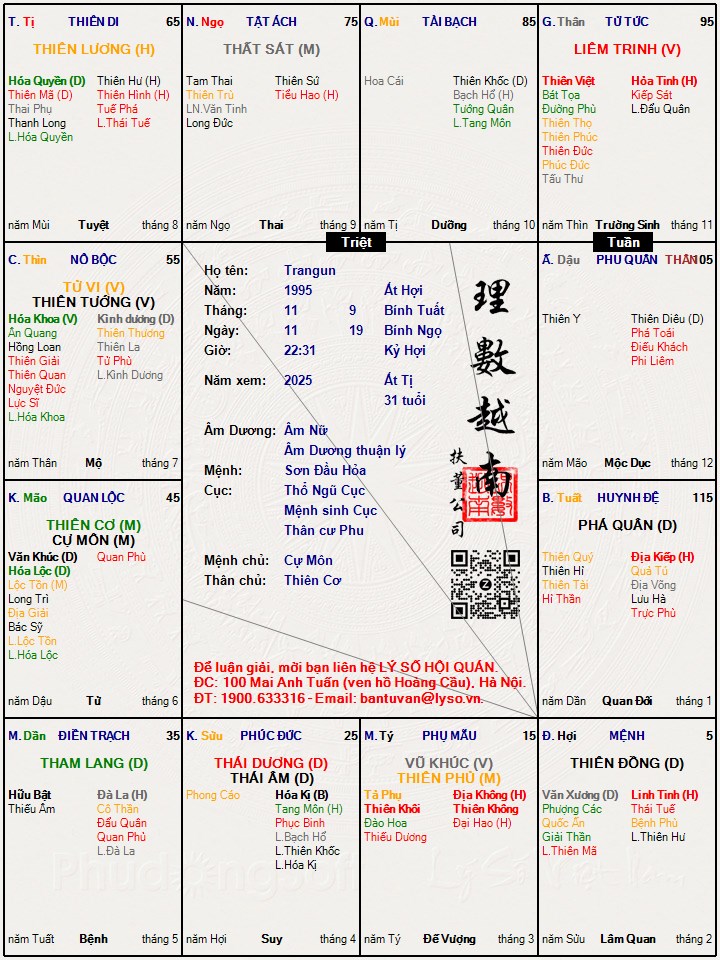 T. Tị THIÊN DI 65
THIÊN LƯƠNG (H)
Hóa Quyền (D) Thiên Hư (H)
Thiên Mã (D) Thiên Hình (H)
Thai Phụ Tuế Phá
Thanh Long L.Thái Tuế
L.Hóa Quyền
năm Mùi Tuyệt tháng 8
N. Ngọ TẬT ÁCH 75
THẤT SÁT (M)
Tam Thai Thiên Sứ
Thiên Trù Tiểu Hao (H)
LN.Văn Tinh
Long Đức
năm Ngọ Thai tháng 9
Q. Mùi TÀI BẠCH 85
Hoa Cái Thiên Khốc (D)
Bạch Hổ (H)
Tướng Quân
L.Tang Môn
năm Tị Dưỡng tháng 10
G. Thân TỬ TỨC 95
LIÊM TRINH (V)
Thiên Việt Hỏa Tinh (H)
Bát Tọa Kiếp Sát
Đường Phù L.Đẩu Quân
Thiên Thọ
Thiên Phúc
Thiên Đức
Phúc Đức
Tấu Thư
năm Thìn Trường Sinh tháng 11
Triệt
Tuần
C. Thìn NÔ BỘC 55
TỬ VI (V)
THIÊN TƯỚNG (V)
Hóa Khoa (V) Kình dương (D)
Ân Quang Thiên Thương
Hồng Loan Thiên La
Thiên Giải Tử Phù
Thiên Quan L.Kình Dương
Nguyệt Đức
Lực Sĩ
L.Hóa Khoa
năm Thân Mộ tháng 7
Họ tên: Trangun
Năm: 1995 Ất Hợi
Tháng: 11 9 Bính Tuất
Ngày: 11 19 Bính Ngọ
Giờ: 22:31 Kỷ Hợi
Năm xem: 2025 Ất Tị
31 tuổi
Âm Dương: Âm Nữ
Âm Dương thuận lý
Mệnh: Sơn Đầu Hỏa
Cục: Thổ Ngũ Cục
Mệnh sinh Cục
Thân cư Phu
Mệnh chủ: Cự Môn
Thân chủ: Thiên Cơ
理數越南
扶董公司
Để luận giải, mời bạn liên hệ LÝ SỐ HỘI QUÁN.
ĐC: 100 Mai Anh Tuấn (ven hồ Hoàng Cầu), Hà Nội.
ĐT: 1900.633316 - Email: bantuvan@lyso.vn.
Ấ. Dậu PHU QUÂN THÂN 105
Thiên Y Thiên Diêu (D)
Phá Toái
Điếu Khách
Phi Liêm
năm Mão Mộc Dục tháng 12
K. Mão QUAN LỘC 45
THIÊN CƠ (M)
CỰ MÔN (M)
Văn Khúc (D) Quan Phù
Hóa Lộc (D)
Lộc Tồn (M)
Long Trì
Địa Giải
Bác Sỹ
L.Lộc Tồn
L.Hóa Lộc
năm Dậu Tử tháng 6
B. Tuất HUYNH ĐỆ 115
PHÁ QUÂN (D)
Thiên Quý Địa Kiếp (H)
Thiên Hỉ Quả Tú
Thiên Tài Địa Võng
Hỉ Thần Lưu Hà
Trực Phù
năm Dần Quan Đới tháng 1
M. Dần ĐIỀN TRẠCH 35
THAM LANG (D)
Hữu Bật Đà La (H)
Thiếu Âm Cô Thần
Đẩu Quân
Quan Phủ
L.Đà La
năm Tuất Bệnh tháng 5
K. Sửu PHÚC ĐỨC 25
THÁI DƯƠNG (D)
THÁI ÂM (D)
Phong Cáo Hóa Kị (B)
Tang Môn (H)
Phục Binh
L.Bạch Hổ
L.Thiên Khốc
L.Hóa Kị
năm Hợi Suy tháng 4
M. Tý PHỤ MẪU 15
VŨ KHÚC (V)
THIÊN PHỦ (M)
Tả Phụ Địa Không (H)
Thiên Khôi Thiên Không
Đào Hoa Đại Hao (H)
Thiếu Dương
năm Tý Đế Vượng tháng 3
Đ. Hợi MỆNH 5
THIÊN ĐỒNG (D)
Văn Xương (D) Linh Tinh (H)
Phượng Các Thái Tuế
Quốc Ấn Bệnh Phù
Giải Thần L.Thiên Hư
L.Thiên Mã
năm Sửu Lâm Quan tháng 2